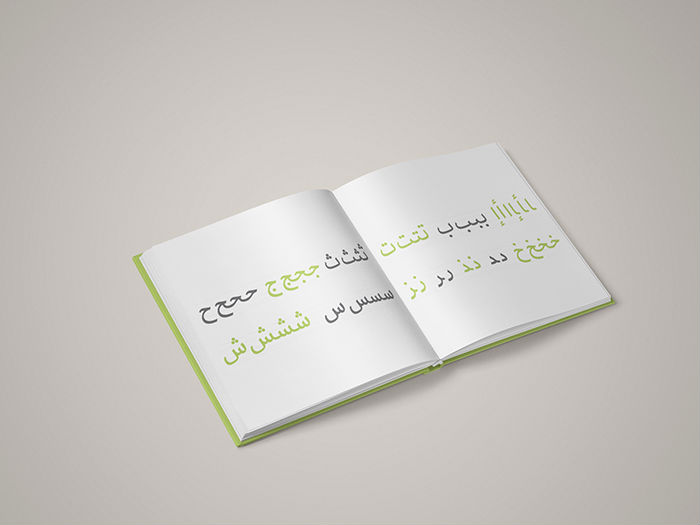 ااأإااأإ ببب‍ب تتت‍ت ثثث‍ث ججج‍ج ححح‍ح
خخخ‍خ دد ذذ رر زز سسس‍س ششش‍ش